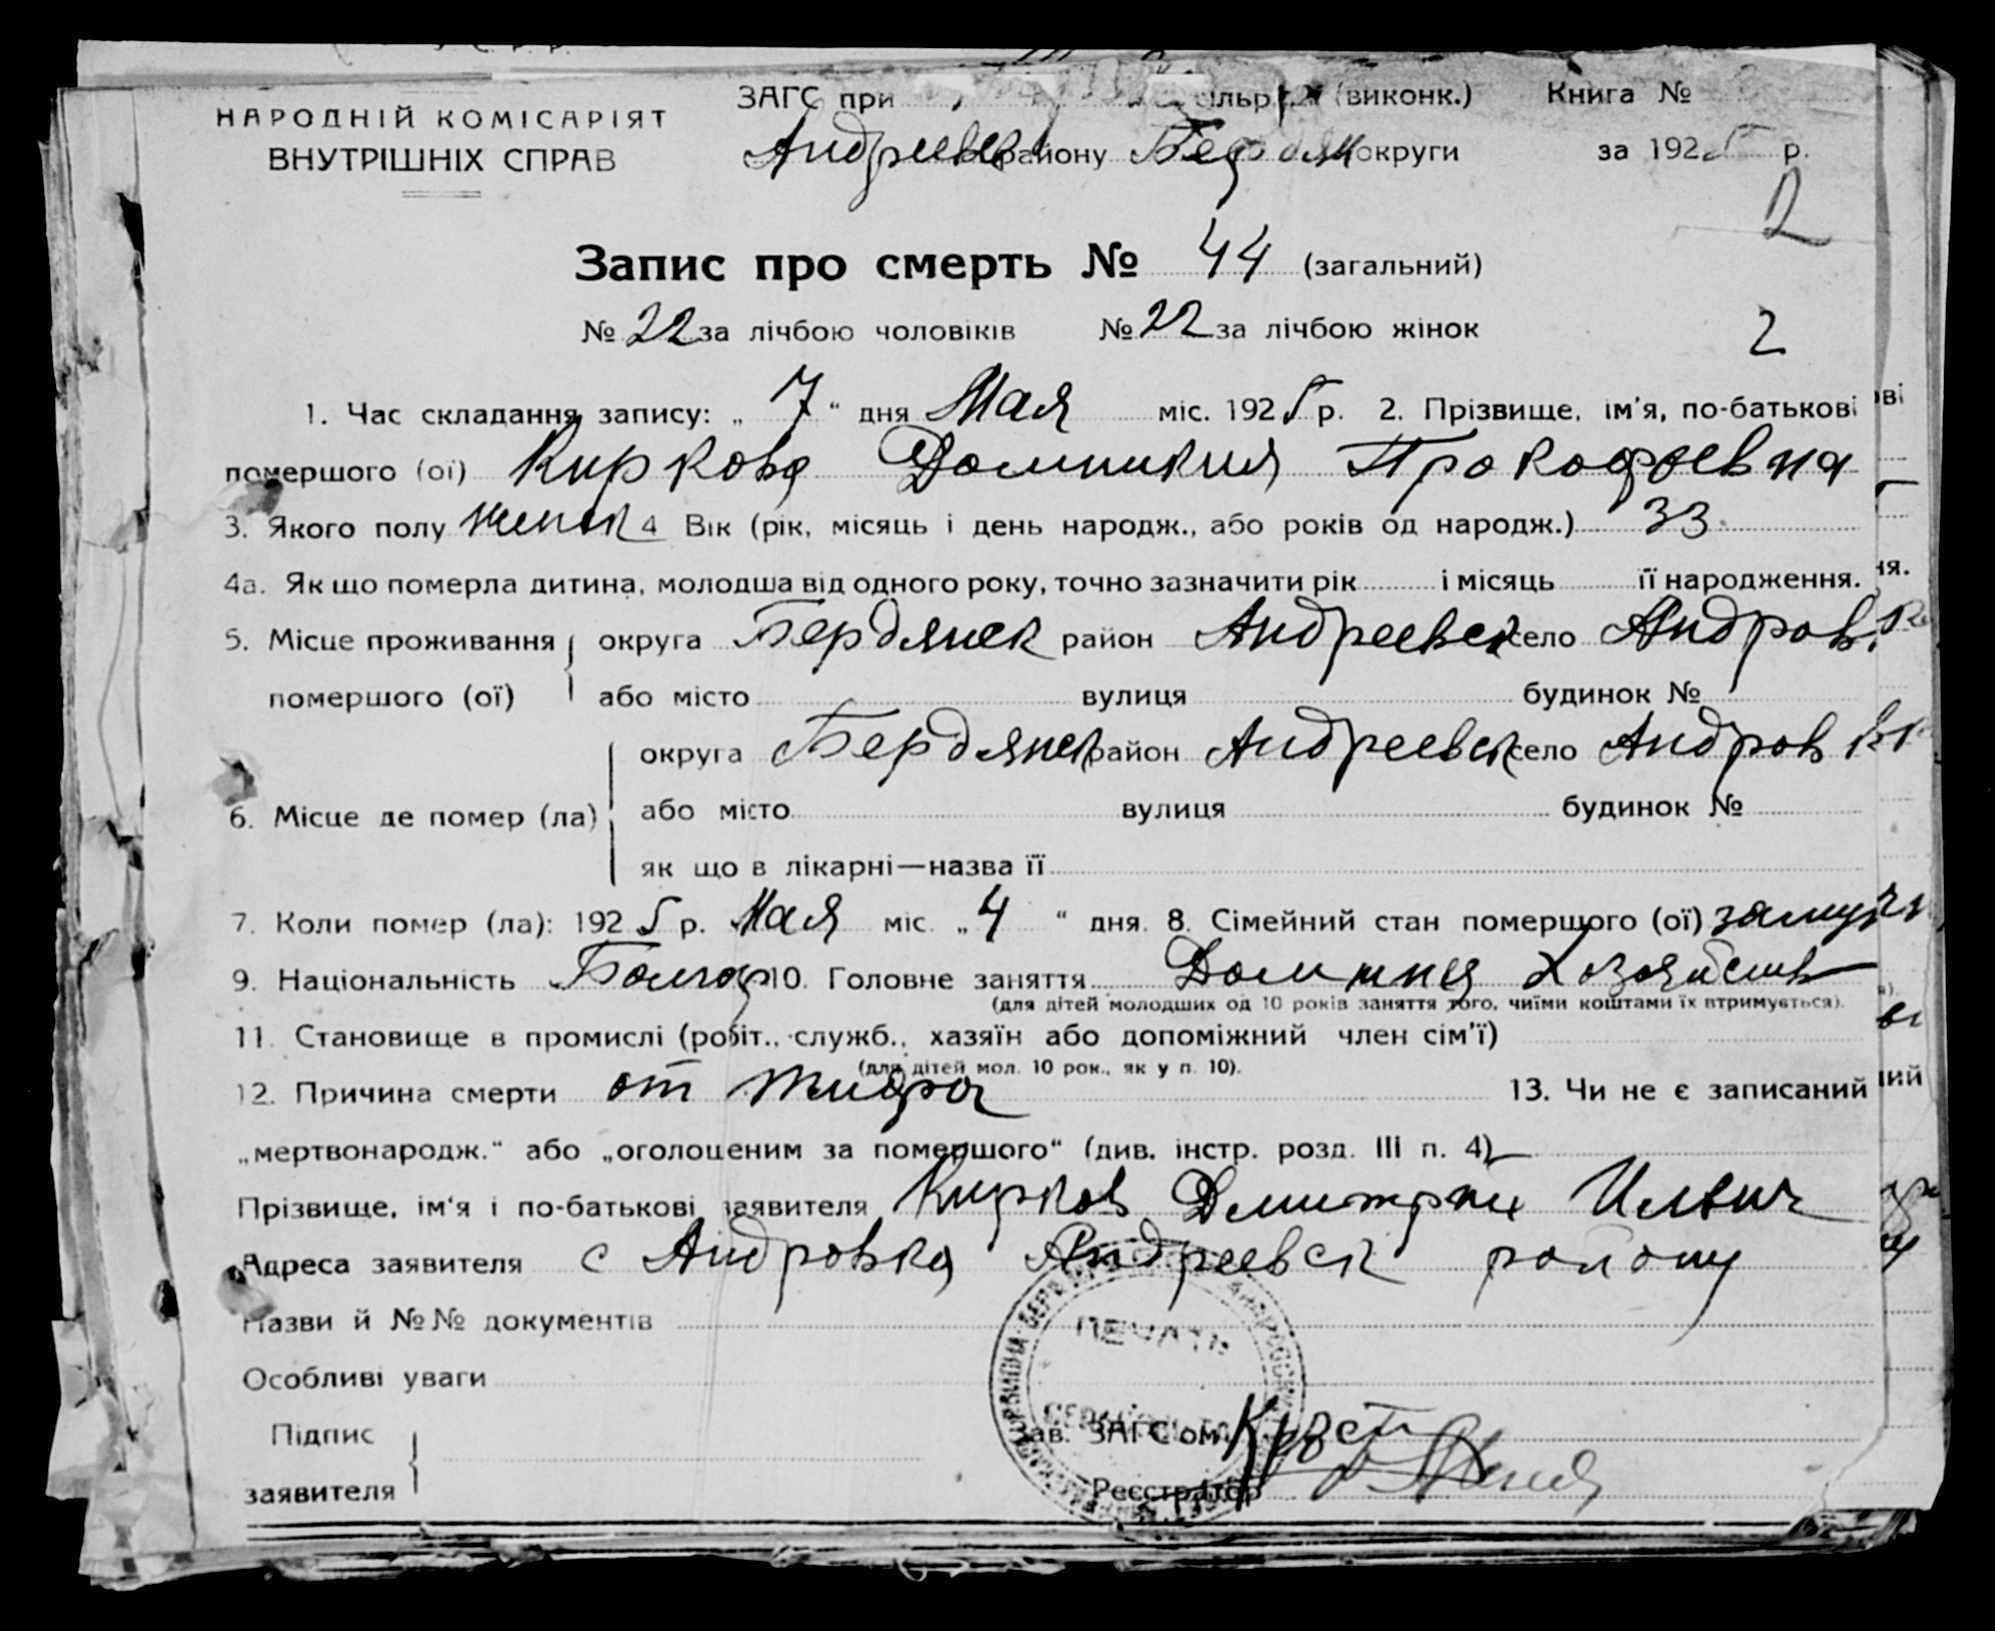 НАРОДНІЙ КОМІСАРІЯТ
ВНУТРІШНІХ СПРАВ
ЗАГС при (виконк.)
Книга №
Андреевск району Бердян округи
за 1925 р.
2
Запис про смерть № 44 (загальний)
№ 22 за лічбою чоловіків № 22 за лічбою жінок
2
1. Час складання запису: „ 7 “ дня Мая міс. 1925 р. 2. Прізвище, ім'я, по-батькові
помершого (ої) Киркова Домникия Прокофьевна
3. Якого полу женск 4 Вік (рік, місяць і день народж., або років од народж.) 33
4а. Як що померла дитина, молодша від одного року, точно зазначити рік і місяць її народження.
5. Місце проживання помершого (ої)
округа Бердянск район Андреевск село Андровка
або місто вулиця будинок №
6. Місце де помер (ла)
округа Бердянск район Андреевск село Андровк
або місто вулиця будинок №
як що в лікарні—назва її
7. Коли помер (ла): 1925 р. Мая міс. „ 4 “ дня. 8. Сімейний стан помершого (ої) замуж
9. Національність Болгар 10. Головне заняття Домашня Хозяйств
(для дітей молодших од 10 років заняття того, чиїми коштами їх втримується).
11. Становище в промислі (робіт., служб., хазяїн або допоміжний член сім'ї)
(для дітей мол. 10 рок., як у п. 10).
12. Причина смерти от тифа 13. Чи не є записаний
„мертвонародж.“ або „оголошеним за помершого“ (див. інстр. розд. III п. 4) —
Прізвище, ім'я і по-батькові заявителя Кирков Дмитрий Ильич
Адреса заявителя с Андровка Андреевск району
Назви й №№ документів
Особливі уваги
ПЕЧАТЬ
Підпис
заявителя
Зав. ЗАГС'ом
Реєстратор